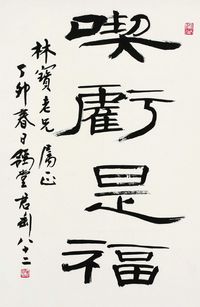 喫虧是福
林寶老兄 屬正
丁卯春日豫堂君匋八十二